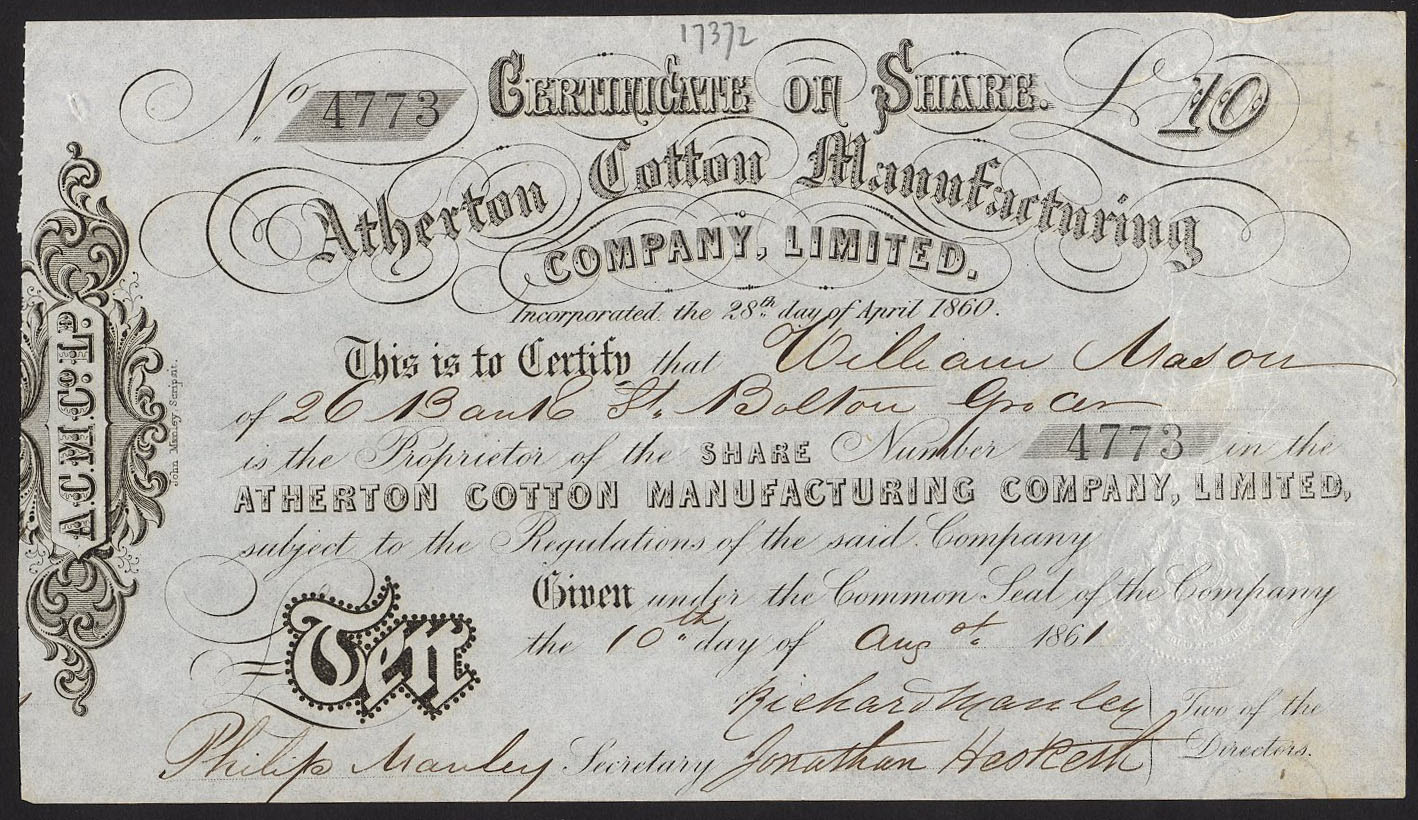 17372
No. 4773 CERTIFICATE OF SHARE. £10
Atherton Cotton Manufacturing
COMPANY, LIMITED.
Incorporated the 28th day of April 1860.
This is to Certify that William Mason
of 26 Bank St. Bolton Grocer
is the Proprietor of the SHARE Number 4773 in the
ATHERTON COTTON MANUFACTURING COMPANY, LIMITED,
subject to the Regulations of the said Company
Given under the Common Seal of the Company
the 10th day of Augst. 1861
Ten
Richard Manley
Two of the
Directors.
Philip Manley Secretary Jonathan Hesketh
A.C.M. Co. Ld.
John Manley Script.